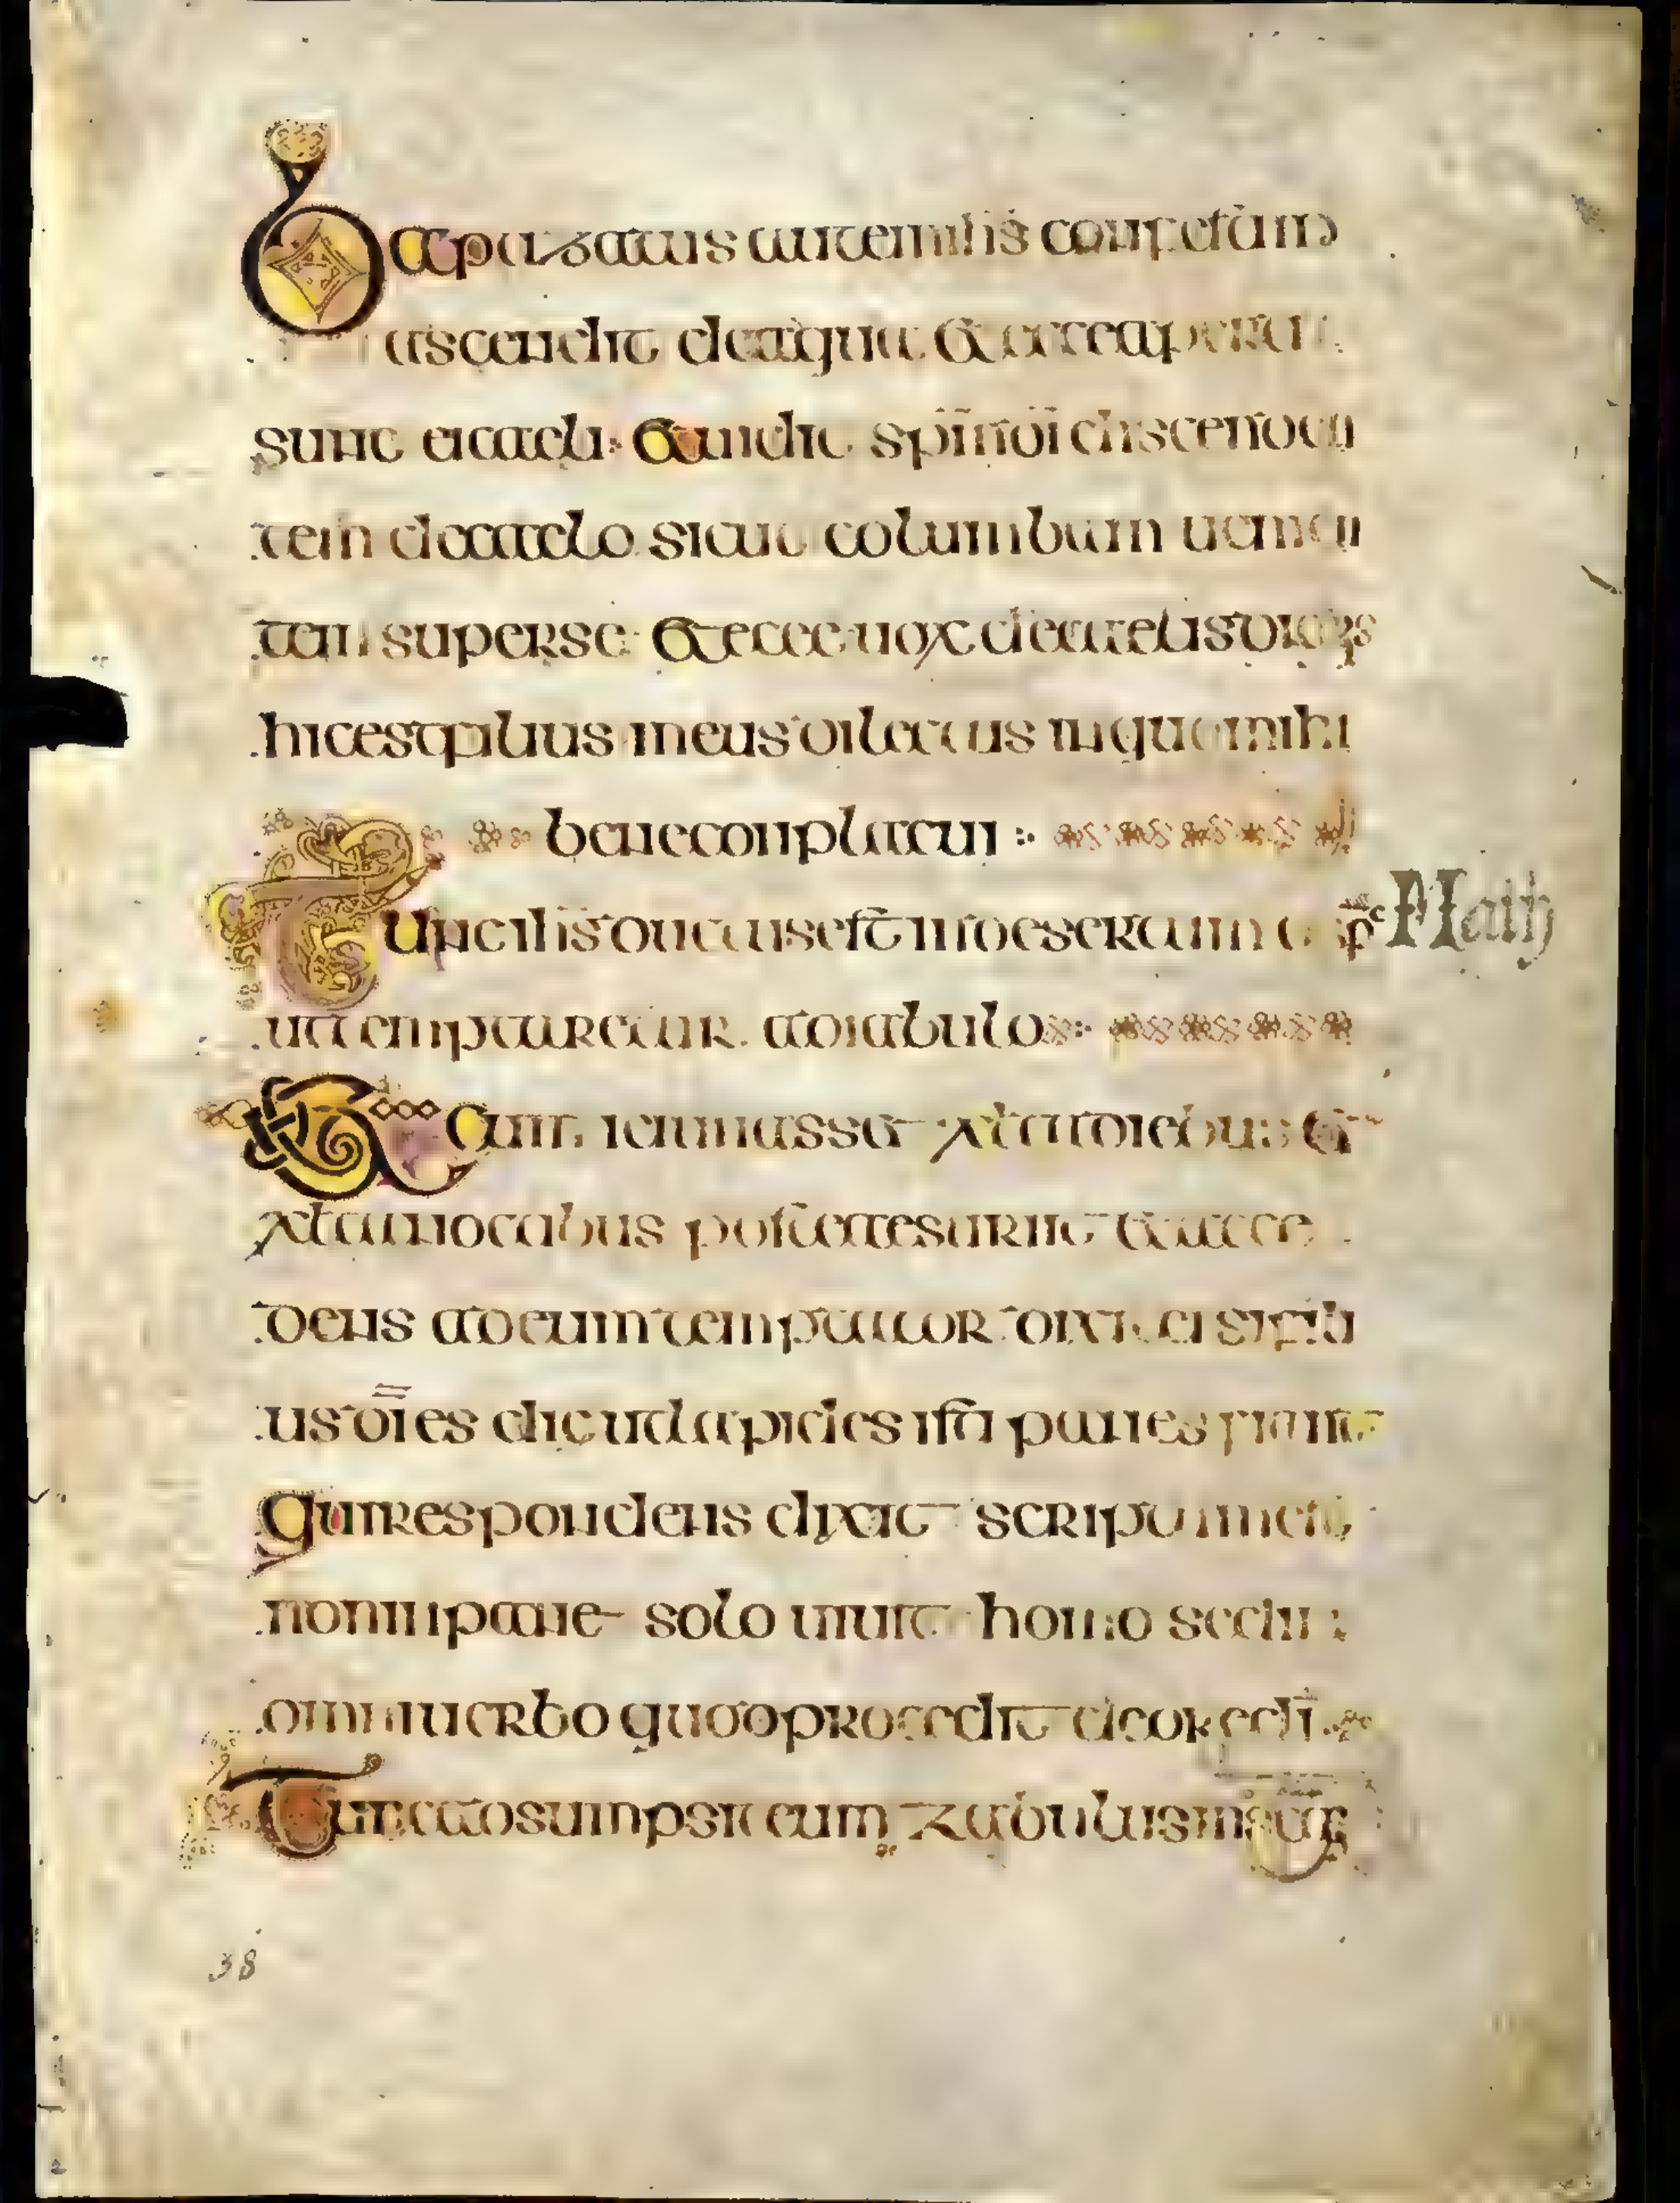 Bapuzatus autem ihs confestim
ascendit de aqua & ecce aperti
sunt ei caeli & uidit spm di discenden
tem de caelo sicut columbam uenien
tem super se & ecce uox de caelis dicens
hic est filius meus dilectus in quo mihi
bene conplacui
Tunc ihs ductus est in desertum a spu
ut temptaretur a diabulo
& cum ieiunasset xl ta diebus &
xl ta noctibus postea esuriit & acce
dens ad eum temptator dixit ei si fili
us di es dic ut lapides isti panes fiant
qui respondens dixit scriptum est
non in pane solo uiuit homo sed in
omni uerbo quod procedit de ore di
Tunc adsumpsit eum zabulus in
38